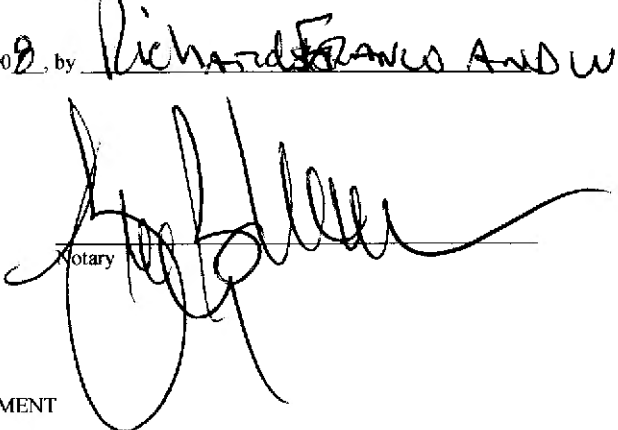 08, by Richard FRANCO AND W
Notary
MENT